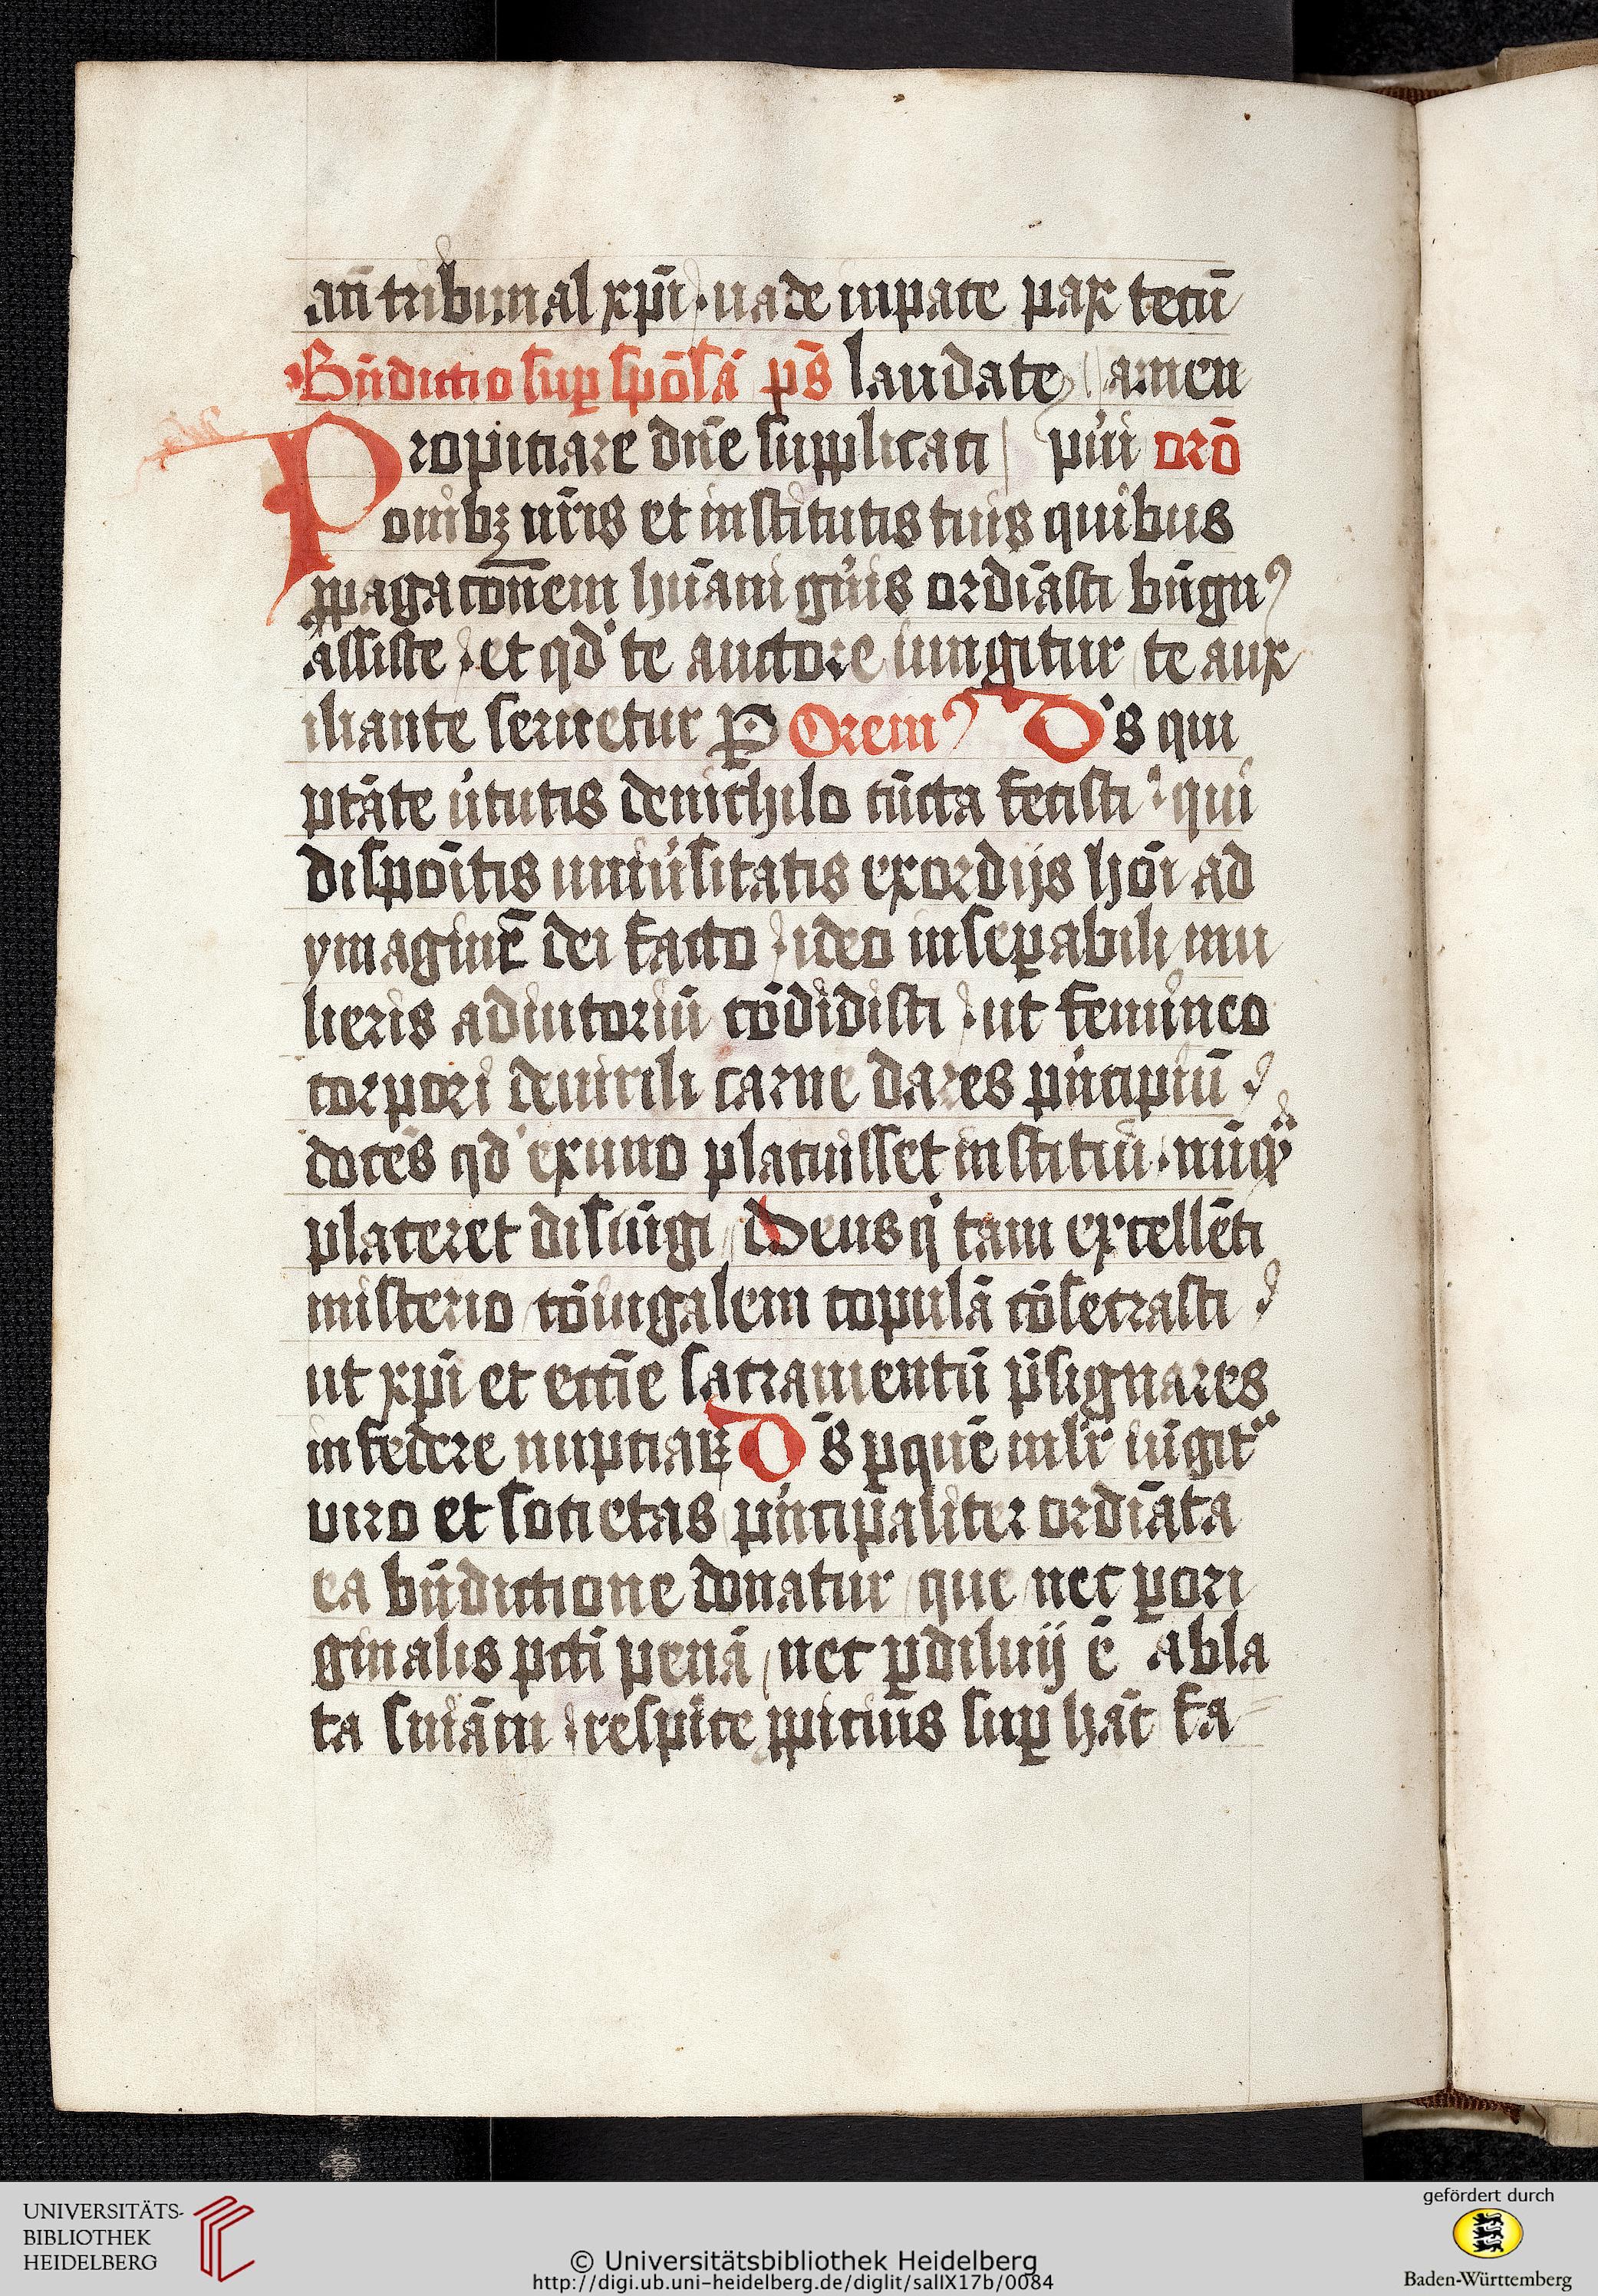 an̄ tribunal xp̄i . uade in pace pax tecū
Bn̄dictio sup̱ spōsā ps̄ laudate amen
Propitiare dn̄e supplicati pui orō
onibꝫ nr̄is et institutis tuis quibus
ꝓpagacōnem hūani gn̄is ordīasti bn̄gnꝰ
assiste . et qd' te auctore iungitur te aux
iliante seruetur P Oremꝰ D's qui
ptāte u'tutis de nichilo cūcta fecisti . qui
dispoītis uniu'sitatis exordijs hōi ad
ymaginē dei facto . ideo insep̱abili mu
lieris adiutoriū cōdidisti . ut femineo
corpori de uirili carne dares p'ncipiū .
docēs qd' ex uno placuisset institui . nūqͣ
placeret disiūgi Deus q' tam excellēti
misterio cōiugalem copulā cōsecrasti .
ut xp̄i et eccīe sacramentū p̄signares
in federe nuptiaꝝ Ds̄ ꝑ quē mlr̄ iūgit'
uiro et societas p'ncipaliter ordīata
ea bn̄dictione donatur que nec ꝑ ori
ginalis pcc̄i penā nec ꝑ diluuij ē abla
ta sniām . respice ꝓpicius sup̱ hāc fa-
UNIVERSITÄTS-
BIBLIOTHEK
HEIDELBERG
© Universitätsbibliothek Heidelberg
http://digi.ub.uni-heidelberg.de/diglit/salIX17b/0084
gefördert durch
Baden-Württemberg